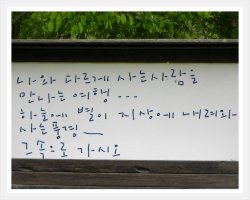 나와 다르게 사는사람을
만나는 여행 ...
하늘에 별이 지상에 내려와
사는풍경 —
그 쪽으로 가시오